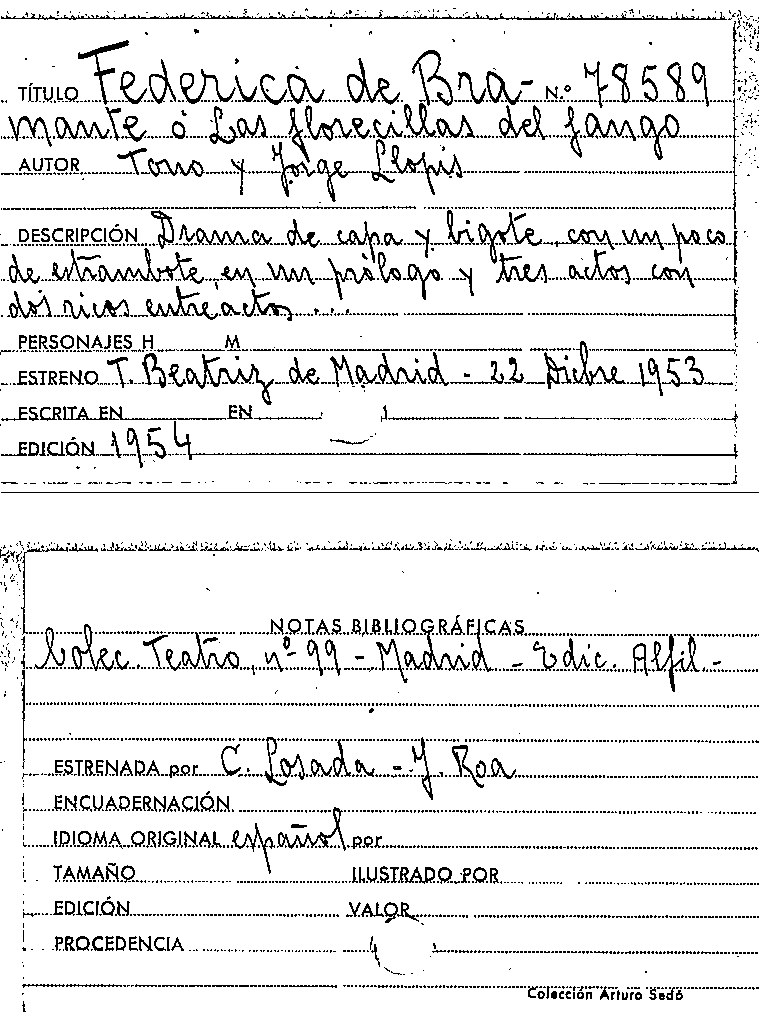 TÍTULO Federica de Bra- N.º 78589
mante ó Las florecillas del fango
AUTOR Tono y Jorge Llopis
DESCRIPCIÓN Drama de capa y bigote, con un poco
de estrambote, en un prólogo y tres actos con
dos ricos entreactos...
PERSONAJES H M
ESTRENO T. Beatriz de Madrid - 22 Dicbre 1953
ESCRITA EN EN
EDICIÓN 1954
NOTAS BIBLIOGRÁFICAS
Colec. Teatro, nº 99 - Madrid - Edic. Alfil.-
ESTRENADA por C. Losada - J. Roa
ENCUADERNACIÓN
IDIOMA ORIGINAL español por
TAMAÑO ILUSTRADO POR
EDICIÓN VALOR
PROCEDENCIA
Colección Arturo Sedó